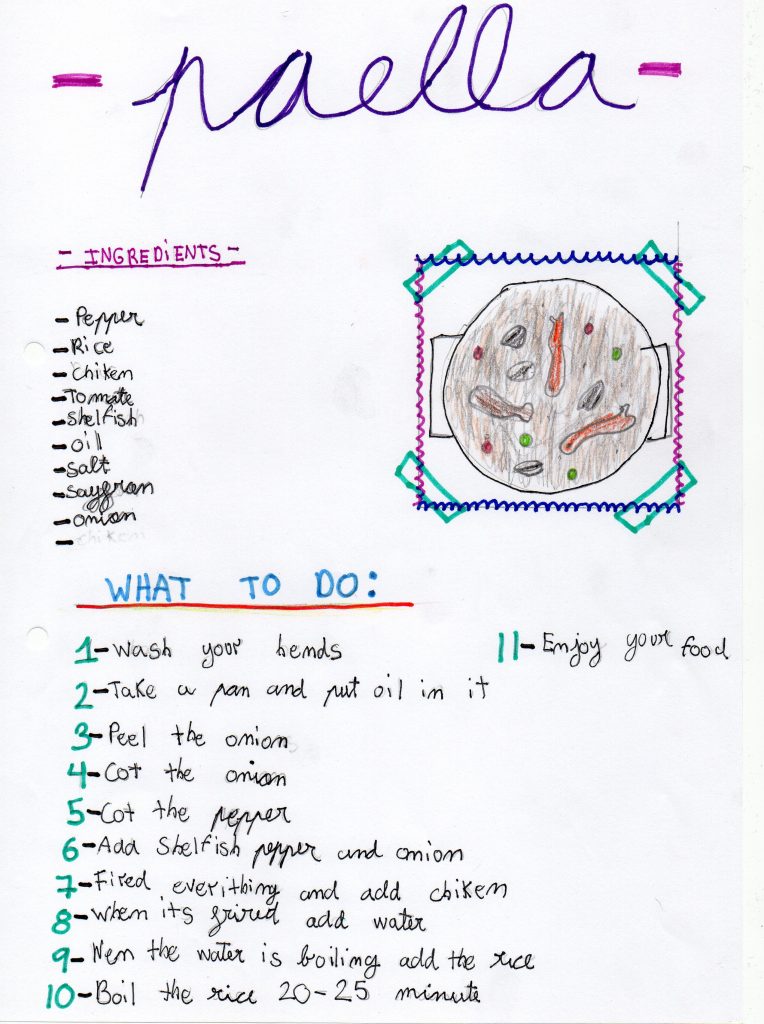 - paella -
- INGREDIENTS -
- Pepper
- Rice
- Chiken
- Tomate
- Shelfish
- oil
- Salt
- Sayffran
- onion
- chiken
WHAT TO DO:
1- Wash your hends
2- Take a pan and put oil in it
3- Peel the onion
4- Cot the onion
5- Cot the pepper
6- Add Shelfish pepper and onion
7- Fired everithing and add chiken
8- When its frired add water
9- Wen the water is boiling add the rice
10- Boil the rice 20-25 minute
11- Enjoy your food